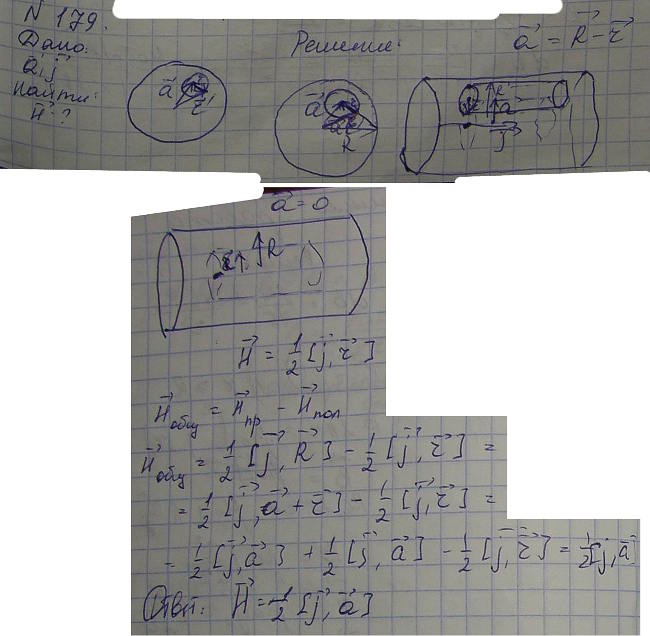 N 179.
Дано:
a, j⃗
Найти:
H⃗ - ?
Решение:
a⃗ = R⃗ - r⃗
a⃗ r⃗
a⃗ R
R a j⃗
a⃗ = 0
r R
H⃗ = 1/2 [j⃗, r⃗]
H⃗общ = H⃗пр - H⃗пол
H⃗общ = 1/2 [j⃗, R⃗] - 1/2 [j⃗, r⃗] =
= 1/2 [j⃗, a⃗ + r⃗] - 1/2 [j⃗, r⃗] =
= 1/2 [j⃗, a⃗] + 1/2 [j⃗, a⃗] - 1/2 [j⃗, r⃗] = 1/2 [j, a⃗]
Ответ: H⃗ = 1/2 [j⃗, a⃗]